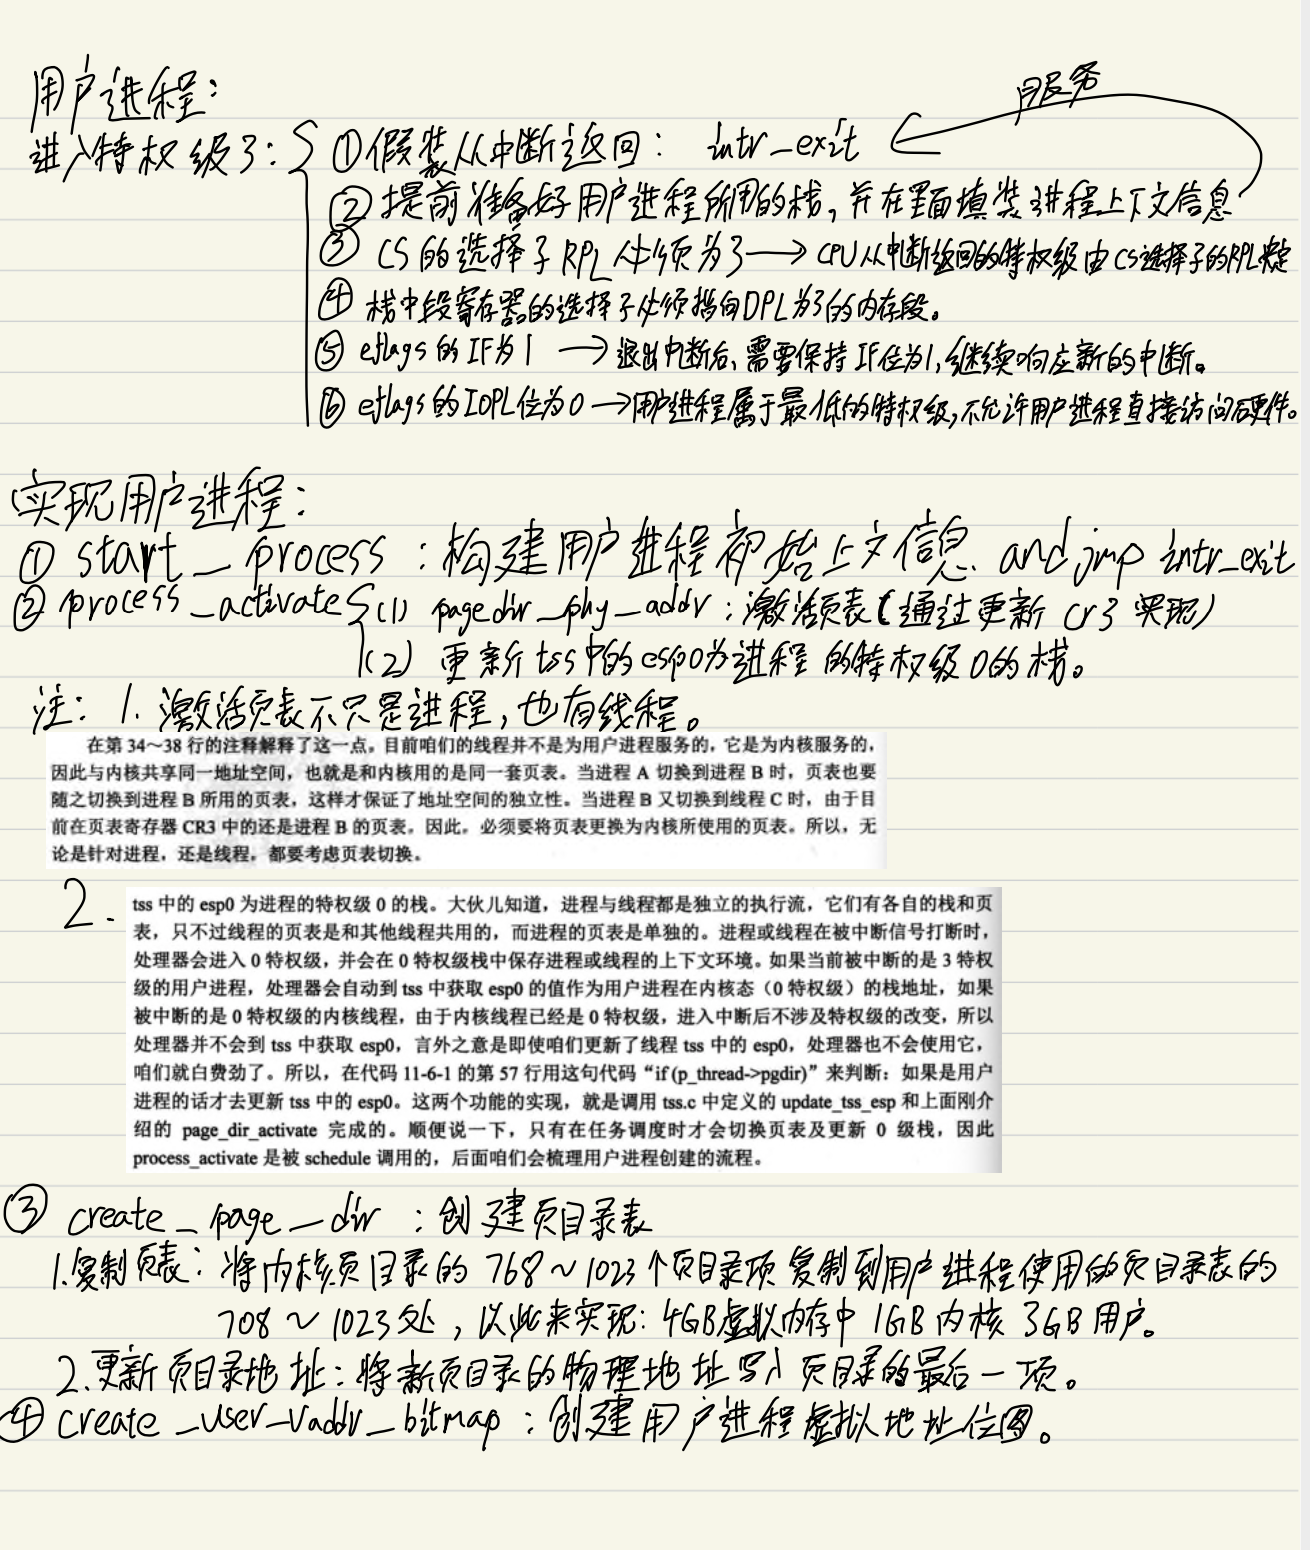 用户进程：
服务
进入特权级3：①假装从中断返回： intr_exit
②提前准备好用户进程所用的栈，并在里面填装进程上下文信息
③ CS的选择子RPL必须为3→CPU从中断返回的特权级由CS选择子的RPL决定
④ 栈中段寄存器的选择子必须指向DPL为3的内存段。
⑤ eflags的IF为1 →退出中断后，需要保持IF位为1，继续响应新的中断。
⑥ eflags的IOPL位为0→用户进程属于最低的特权级，不允许用户进程直接访问硬件。
实现用户进程：
① start_process：构建用户进程初始上文信息 and jmp intr_exit
② process_activate (1) pagedir_phy_addr：激活页表（通过更新 cr3 实现）
(2) 更新tss中的esp0为进程的特权级0的栈。
注： 1. 激活页表不只是进程，也有线程。
在第 34～38 行的注释解释了这一点，目前咱们的线程并不是为用户进程服务的，它是为内核服务的，
因此与内核共享同一地址空间，也就是和内核用的是同一套页表。当进程 A 切换到进程 B 时，页表也要
随之切换到进程 B 所用的页表，这样才保证了地址空间的独立性。当进程 B 又切换到线程 C 时，由于目
前在页表寄存器 CR3 中的还是进程 B 的页表，因此，必须要将页表更换为内核所使用的页表。所以，无
论是针对进程，还是线程，都要考虑页表切换。
2.
tss 中的 esp0 为进程的特权级 0 的栈。大伙儿知道，进程与线程都是独立的执行流，它们有各自的栈和页
表，只不过线程的页表是和其他线程共用的，而进程的页表是单独的。进程或线程在被中断信号打断时，
处理器会进入 0 特权级，并会在 0 特权级栈中保存进程或线程的上下文环境。如果当前被中断的是 3 特权
级的用户进程，处理器会自动到 tss 中获取 esp0 的值作为用户进程在内核态（0 特权级）的栈地址，如果
被中断的是 0 特权级的内核线程，由于内核线程已经是 0 特权级，进入中断后不涉及特权级的改变，所以
处理器并不会到 tss 中获取 esp0，言外之意是即使咱们更新了线程 tss 中的 esp0，处理器也不会使用它，
咱们就白费劲了。所以，在代码 11-6-1 的第 57 行用这句代码“if (p_thread->pgdir)”来判断：如果是用户
进程的话才去更新 tss 中的 esp0。这两个功能的实现，就是调用 tss.c 中定义的 update_tss_esp 和上面刚介
绍的 page_dir_activate 完成的。顺便说一下，只有在任务调度时才会切换页表及更新 0 级栈，因此
process_activate 是被 schedule 调用的，后面咱们会梳理用户进程创建的流程。
③ create_page_dir ：创建页目录表
1.复制页表：将内核页目录的 768～1023个页目录项复制到用户进程使用的页目录表的
708～1023处，以此来实现：4GB虚拟内存中 1GB内核 3GB用户。
2.更新页目录地址：将新页目录的物理地址写入页目录的最后一项。
④ create_user_vaddr_bitmap：创建用户进程虚拟地址位图。